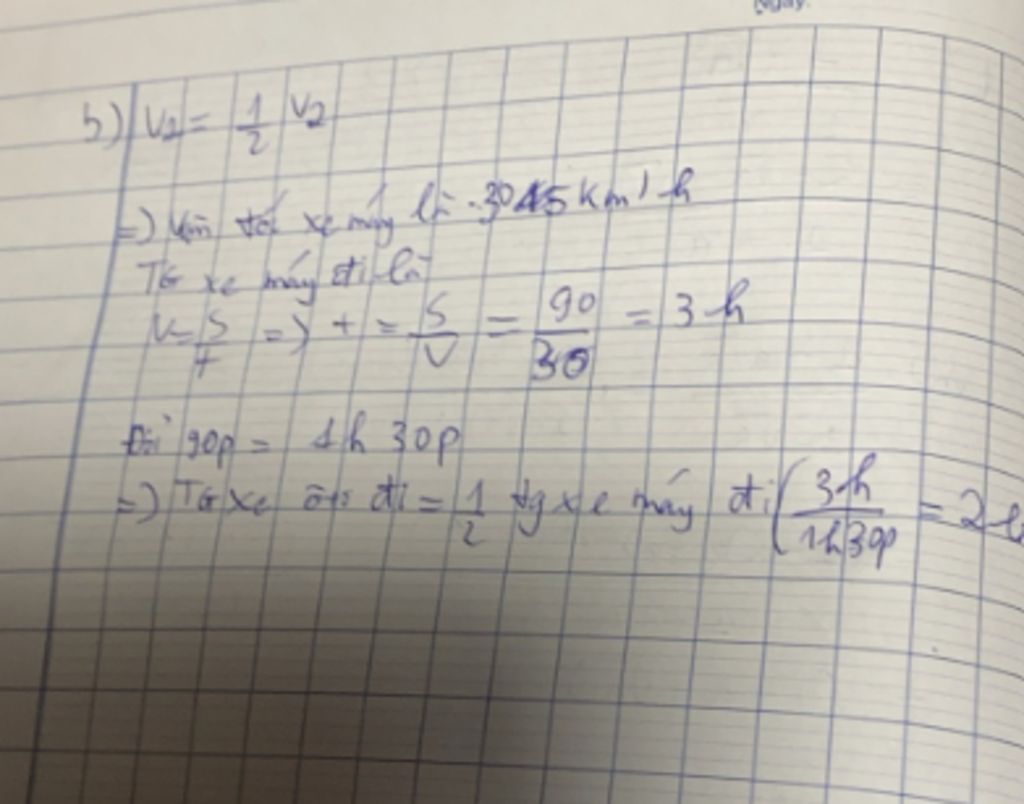 Ngày
b) V2 = 1/2 V2
=) Vận tốc xe máy là 30 45 km/h
TG xe máy đi là
V = S/t => t = S/V = 90/30 = 3h
Đổi 90p = 1h 30p
=) TG xe ôtô đi = 1/2 tg xe máy đi (3h/1h30p = 2